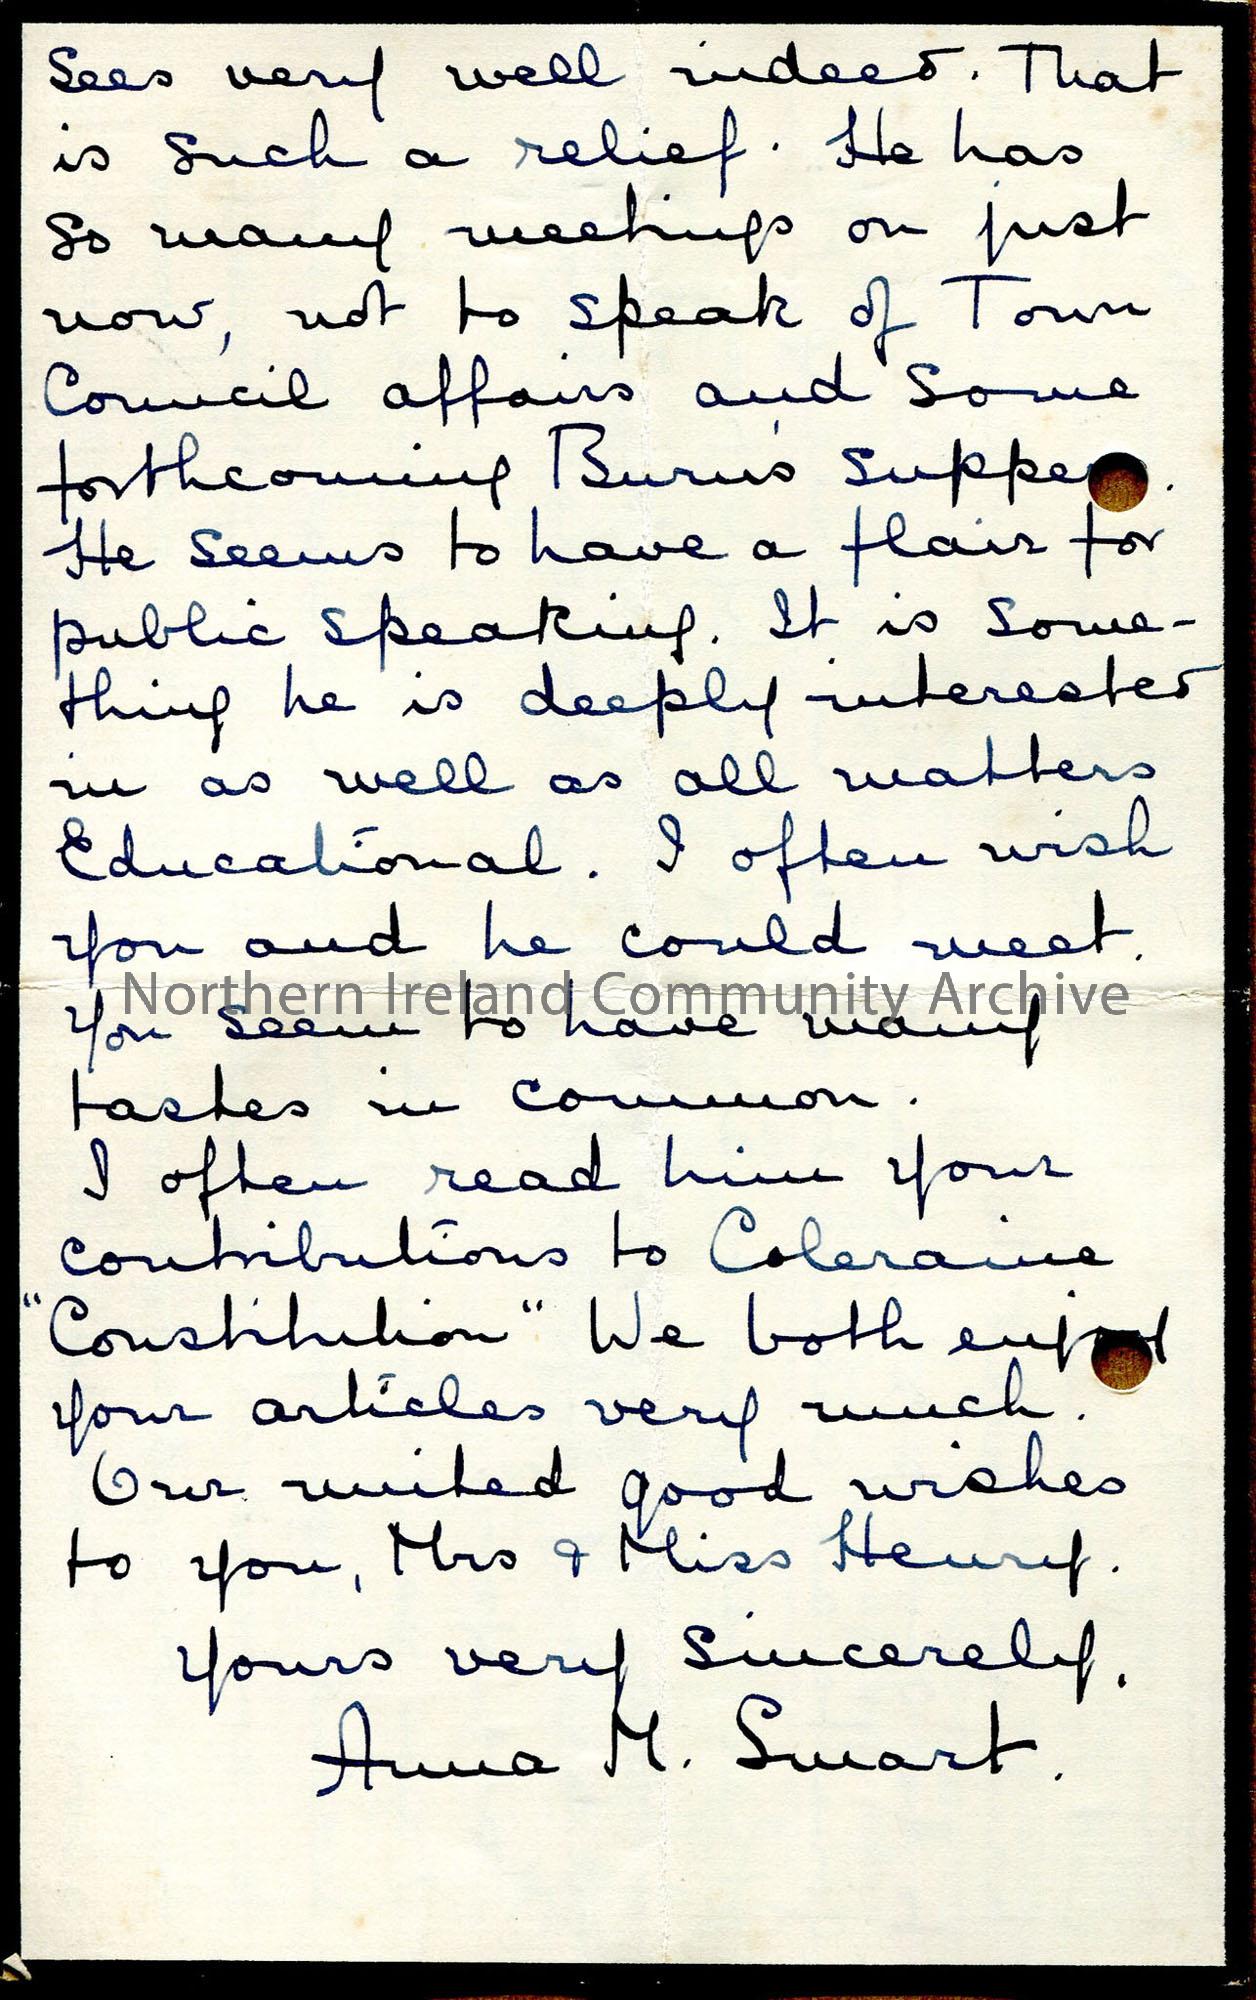 sees very well indeed. That
is such a relief. He has
so many meetings on just
now, not to speak of Town
Council affairs and some
forthcoming Burns suppe.
He seems to have a flair for
public speaking. It is some-
thing he is deeply interested
in as well as all matters
Educational. I often wish
you and he could meet.
Northern Ireland Community Archive
You seem to have many
tastes in common.
I often read him your
contributions to Coleraine
"Constitution" We both enjoy
your articles very much.
Our united good wishes
to you, Mrs & Miss Henry.
Yours very sincerely,
Anna M. Smart.